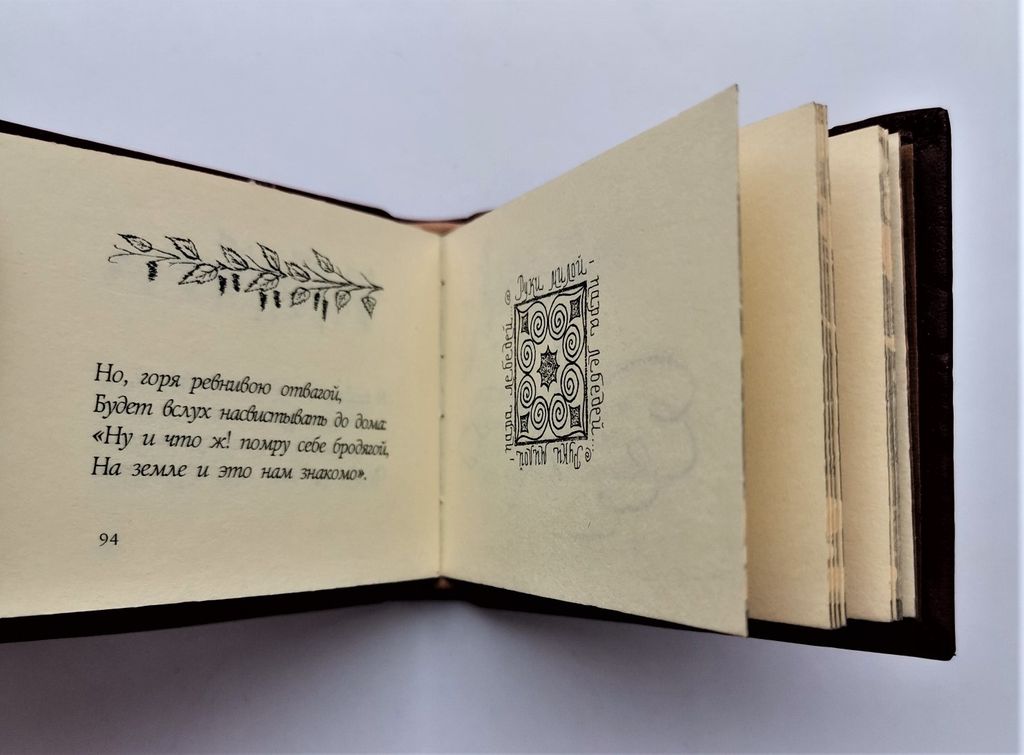 Но, горя ревнивою отвагой,
Будет вслух насвистывать до дома:
«Ну и что ж! помру себе бродягой,
На земле и это нам знакомо».
94
Руки милой -
пара лебедей.
Руки милой -
пара лебедей